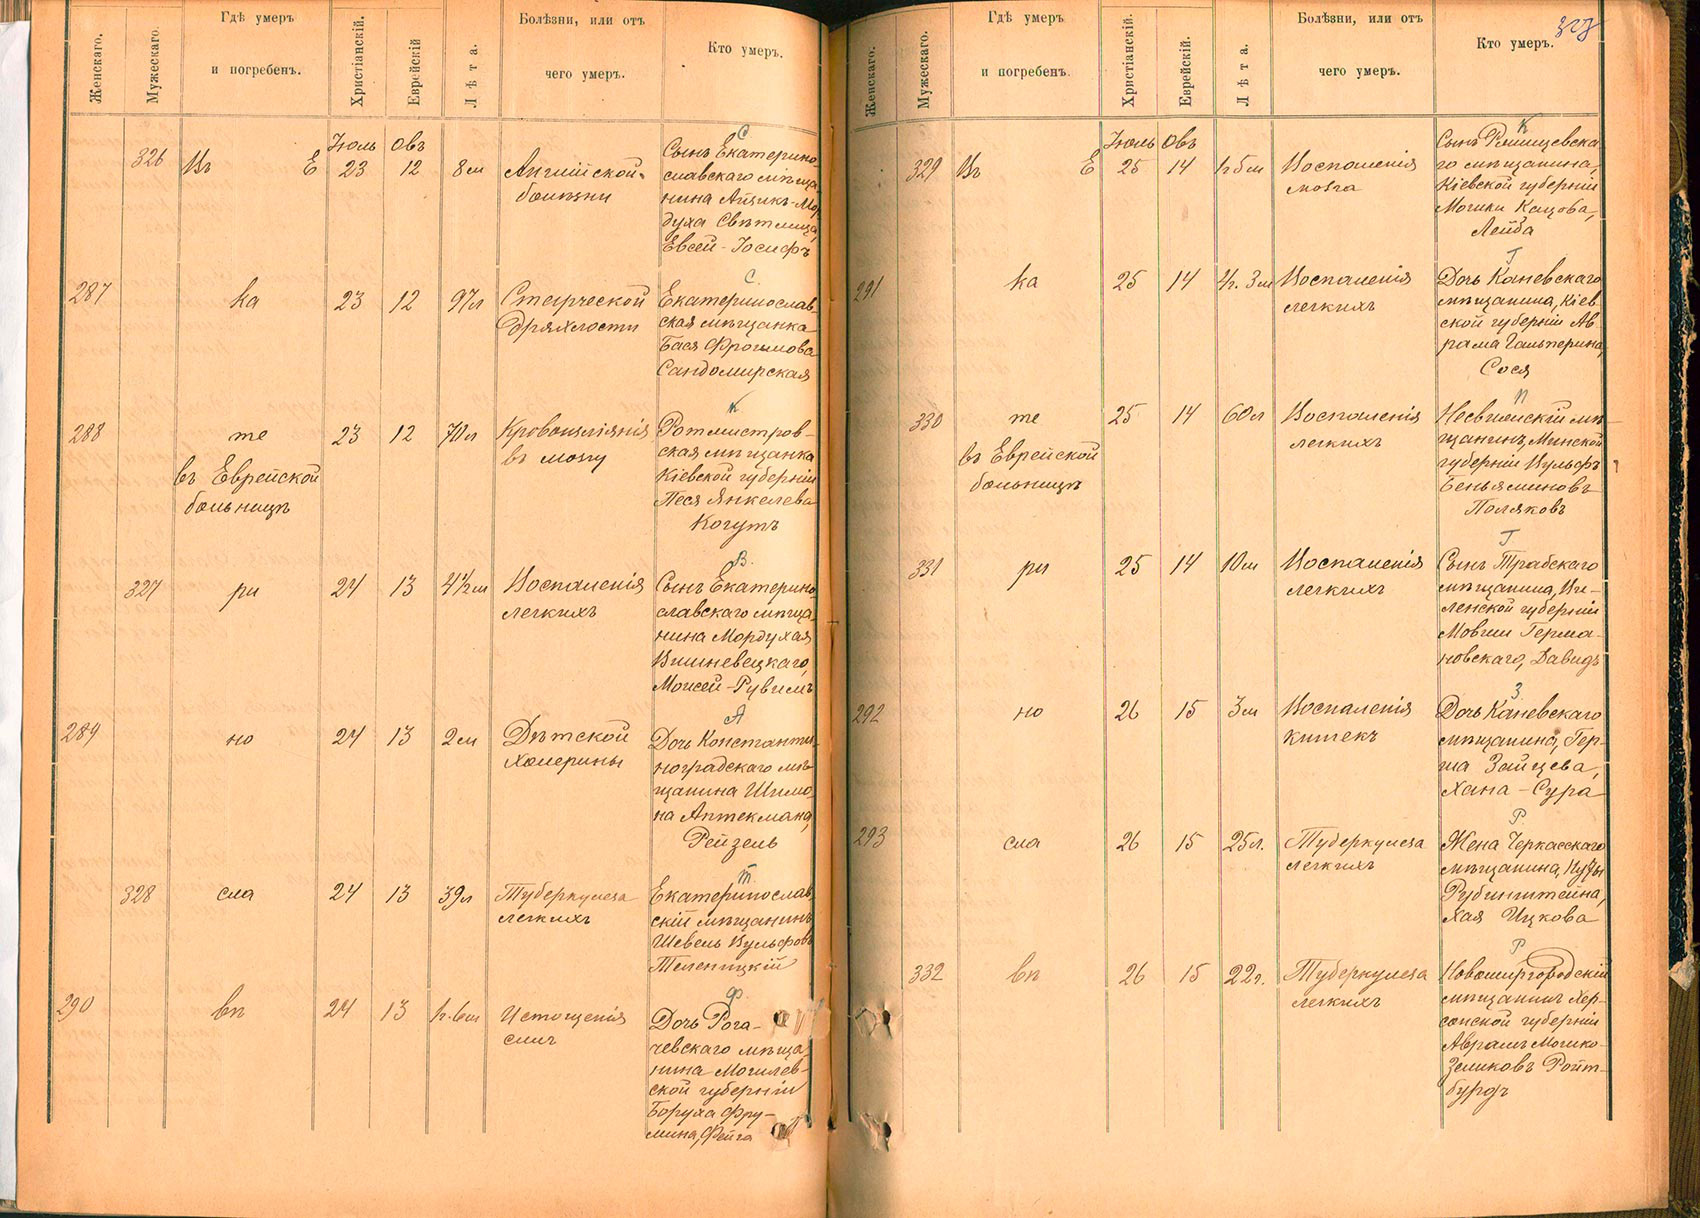 Женскаго.
Мужескаго.
Гдѣ умеръ
и погребенъ.
Христіанскій.
Еврейскій
Лѣта.
Болѣзни, или отъ
чего умеръ.
Кто умеръ.
С
326
Въ Е
Іюль Овъ
23 12 8м
Англійской
болѣзни
Сынъ Екатерино-
славскаго мѣща
нина Айзикъ-Мор
духа Свѣтлица,
Евсей-Іосифъ
С.
287
ка
23 12 97л
Старческой
дряхлости
Екатеринослав-
ская мѣщанка
Бася Фроимова
Сандомирская
К
288
те
въ Еврейской
больницѣ
23 12 70л
Кровоизліянія
въ мозгу
Ротмистров-
ская мѣщанка
Кіевской губерніи
Песя Янкелева
Когутъ
В.
327
ри
24 13 4½м
Воспаленія
легкихъ
Сынъ Екатерино-
славскаго мѣща
нина Мордухая
Вишневецкаго,
Моисей-Рувимъ
А
289
но
24 13 2м
Дѣтской
холерины
Дочь Константи-
ноградскаго мѣ-
щанина Шимо-
на Аптекмана,
Рейзель
Т.
328
сла
24 13 39л
Туберкулеза
легкихъ
Екатеринослав-
скій мѣщанинъ
Шевель Вульфовъ
Тепецкій
Ф.
290
вѣ
24 13 1г.6м
Истощенія
силъ
Дочь Рога-
чевскаго мѣща-
нина Могилев-
ской губерніи
Боруха Фру-
мина, Фейга
Женскаго.
Мужескаго.
Гдѣ умеръ
и погребенъ.
Христіанскій.
Еврейскій.
Лѣта.
Болѣзни, или отъ
чего умеръ.
Кто умеръ.
К
329
Въ Е
Іюль Овъ
25 14 1г5м
Воспаленія
мозга
Сынъ Ромищевска
го мѣщанина,
Кіевской губерніи
Мошки Кацова,
Лейба
Г
291
ка
25 14 4г.3м
Воспаленія
легкихъ
Дочь Каневскаго
мѣщанина, Кіев-
ской губерніи Ав
рама Гальперина,
Сося
П
330
те
въ Еврейской
больницѣ
25 14 60л
Воспаленія
легкихъ
Несвижскій мѣ
щанинъ, Минской
губерніи Вульфъ
Беньяминовъ
Поляковъ
Г
331
ри
25 14 10м
Воспаленія
легкихъ
Сынъ Трабскаго
мѣщанина, Ви-
ленской губерніи
Мовши Герма-
новскаго, Давидъ
З.
292
но
26 15 3м
Воспаленія
кишекъ
Дочь Каневскаго
мѣщанина, Гер-
ша Зайцева,
Хана-Сура
Р.
293
сла
26 15 25л.
Туберкулеза
легкихъ
Жена Черкасскаго
мѣщанина, Иуды
Рубинштейна,
Хая Ицкова
Р
332
вѣ
26 15 22г.
Туберкулеза
легкихъ
Новомиргородскій
мѣщанинъ Хер-
сонской губерніи
Аврамъ Мошко-
Зеликовъ Ройт-
бурдъ